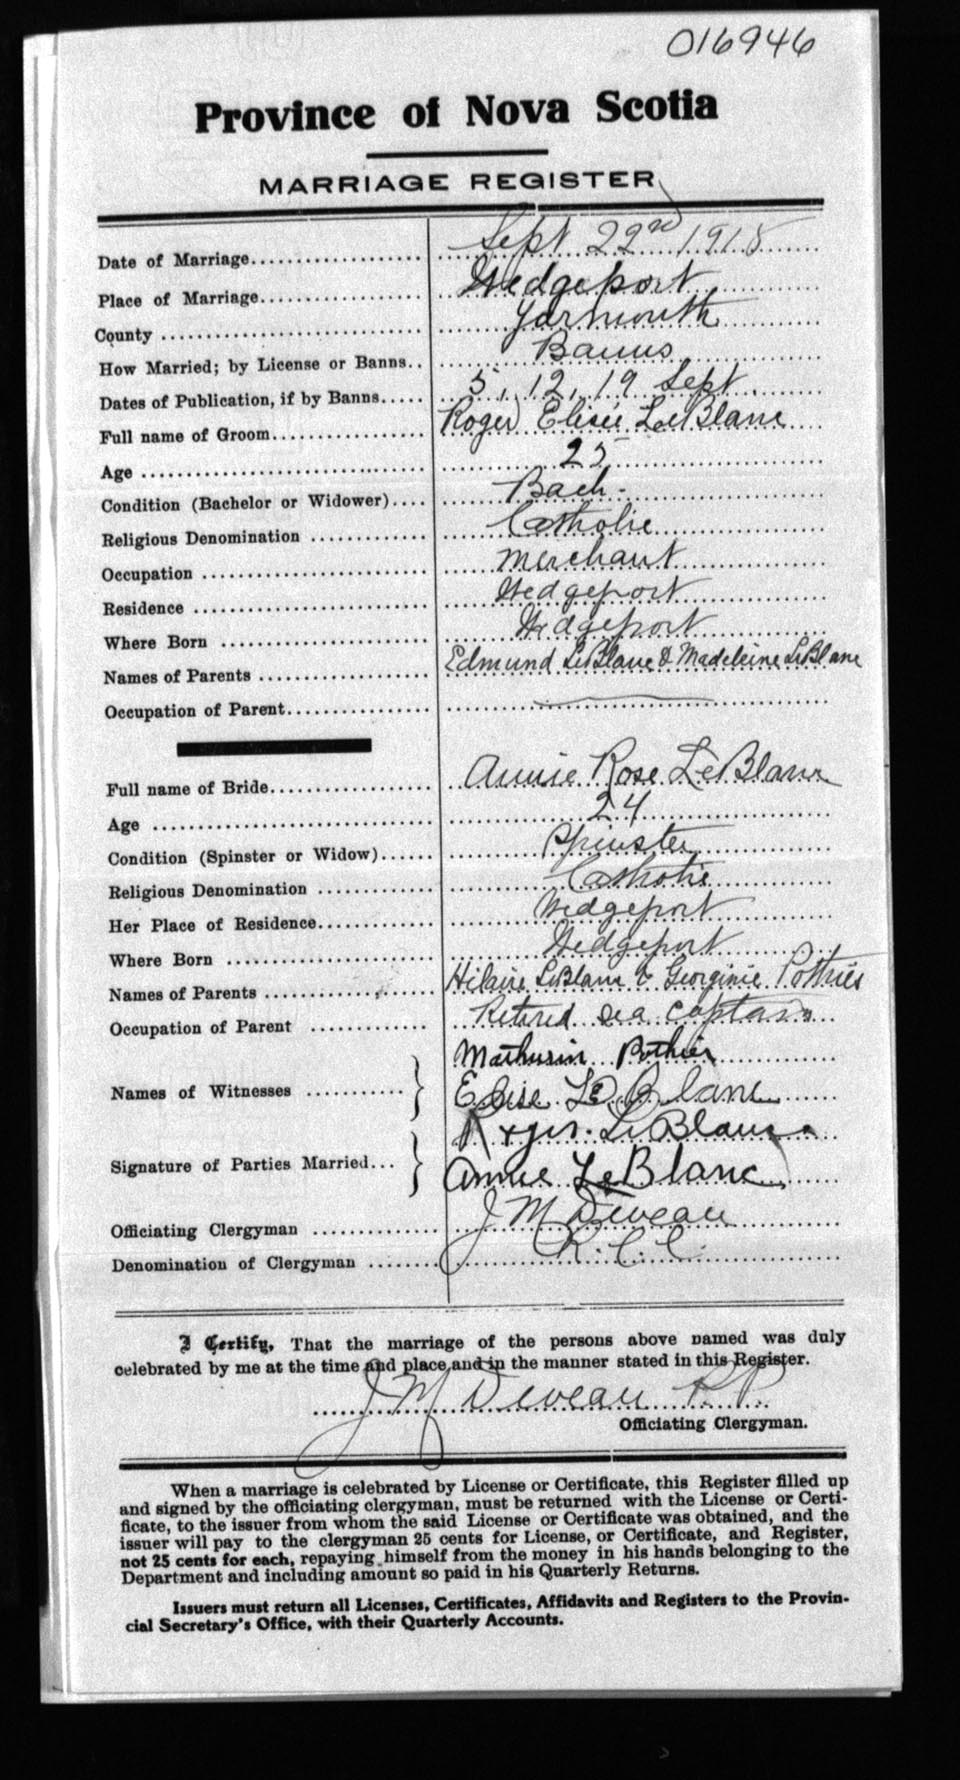 016946
Province of Nova Scotia
MARRIAGE REGISTER
Date of Marriage Sept 22nd 1915
Place of Marriage Wedgeport
County Yarmouth
How Married; by License or Banns Banns
Dates of Publication, if by Banns 5, 12, 19 Sept.
Full name of Groom Roger Elisée LeBlanc
Age 25
Condition (Bachelor or Widower) Bach.
Religious Denomination Catholic
Occupation Merchant
Residence Wedgeport
Where Born Wedgeport
Names of Parents Edmund LeBlanc & Madeleine LeBlanc
Occupation of Parent
Full name of Bride Annie Rose LeBlanc
Age 24
Condition (Spinster or Widow) Spinster
Religious Denomination Catholic
Her Place of Residence Wedgeport
Where Born Wedgeport
Names of Parents Hilaire LeBlanc & Georginie Pothier
Occupation of Parent Retired sea captain
Names of Witnesses Mathurin Pothier
Elise LeBlanc
Signature of Parties Married Roger LeBlanc
Annie LeBlanc
Officiating Clergyman J M Deveau
Denomination of Clergyman R. C. C.
I Certify, That the marriage of the persons above named was duly
celebrated by me at the time and place and in the manner stated in this Register.
J M Deveau P.P.
Officiating Clergyman.
When a marriage is celebrated by License or Certificate, this Register filled up
and signed by the officiating clergyman, must be returned with the License or Certi-
ficate, to the issuer from whom the said License or Certificate was obtained, and the
issuer will pay to the clergyman 25 cents for License, or Certificate, and Register,
not 25 cents for each, repaying himself from the money in his hands belonging to the
Department and including amount so paid in his Quarterly Returns.
Issuers must return all Licenses, Certificates, Affidavits and Registers to the Provin-
cial Secretary's Office, with their Quarterly Accounts.